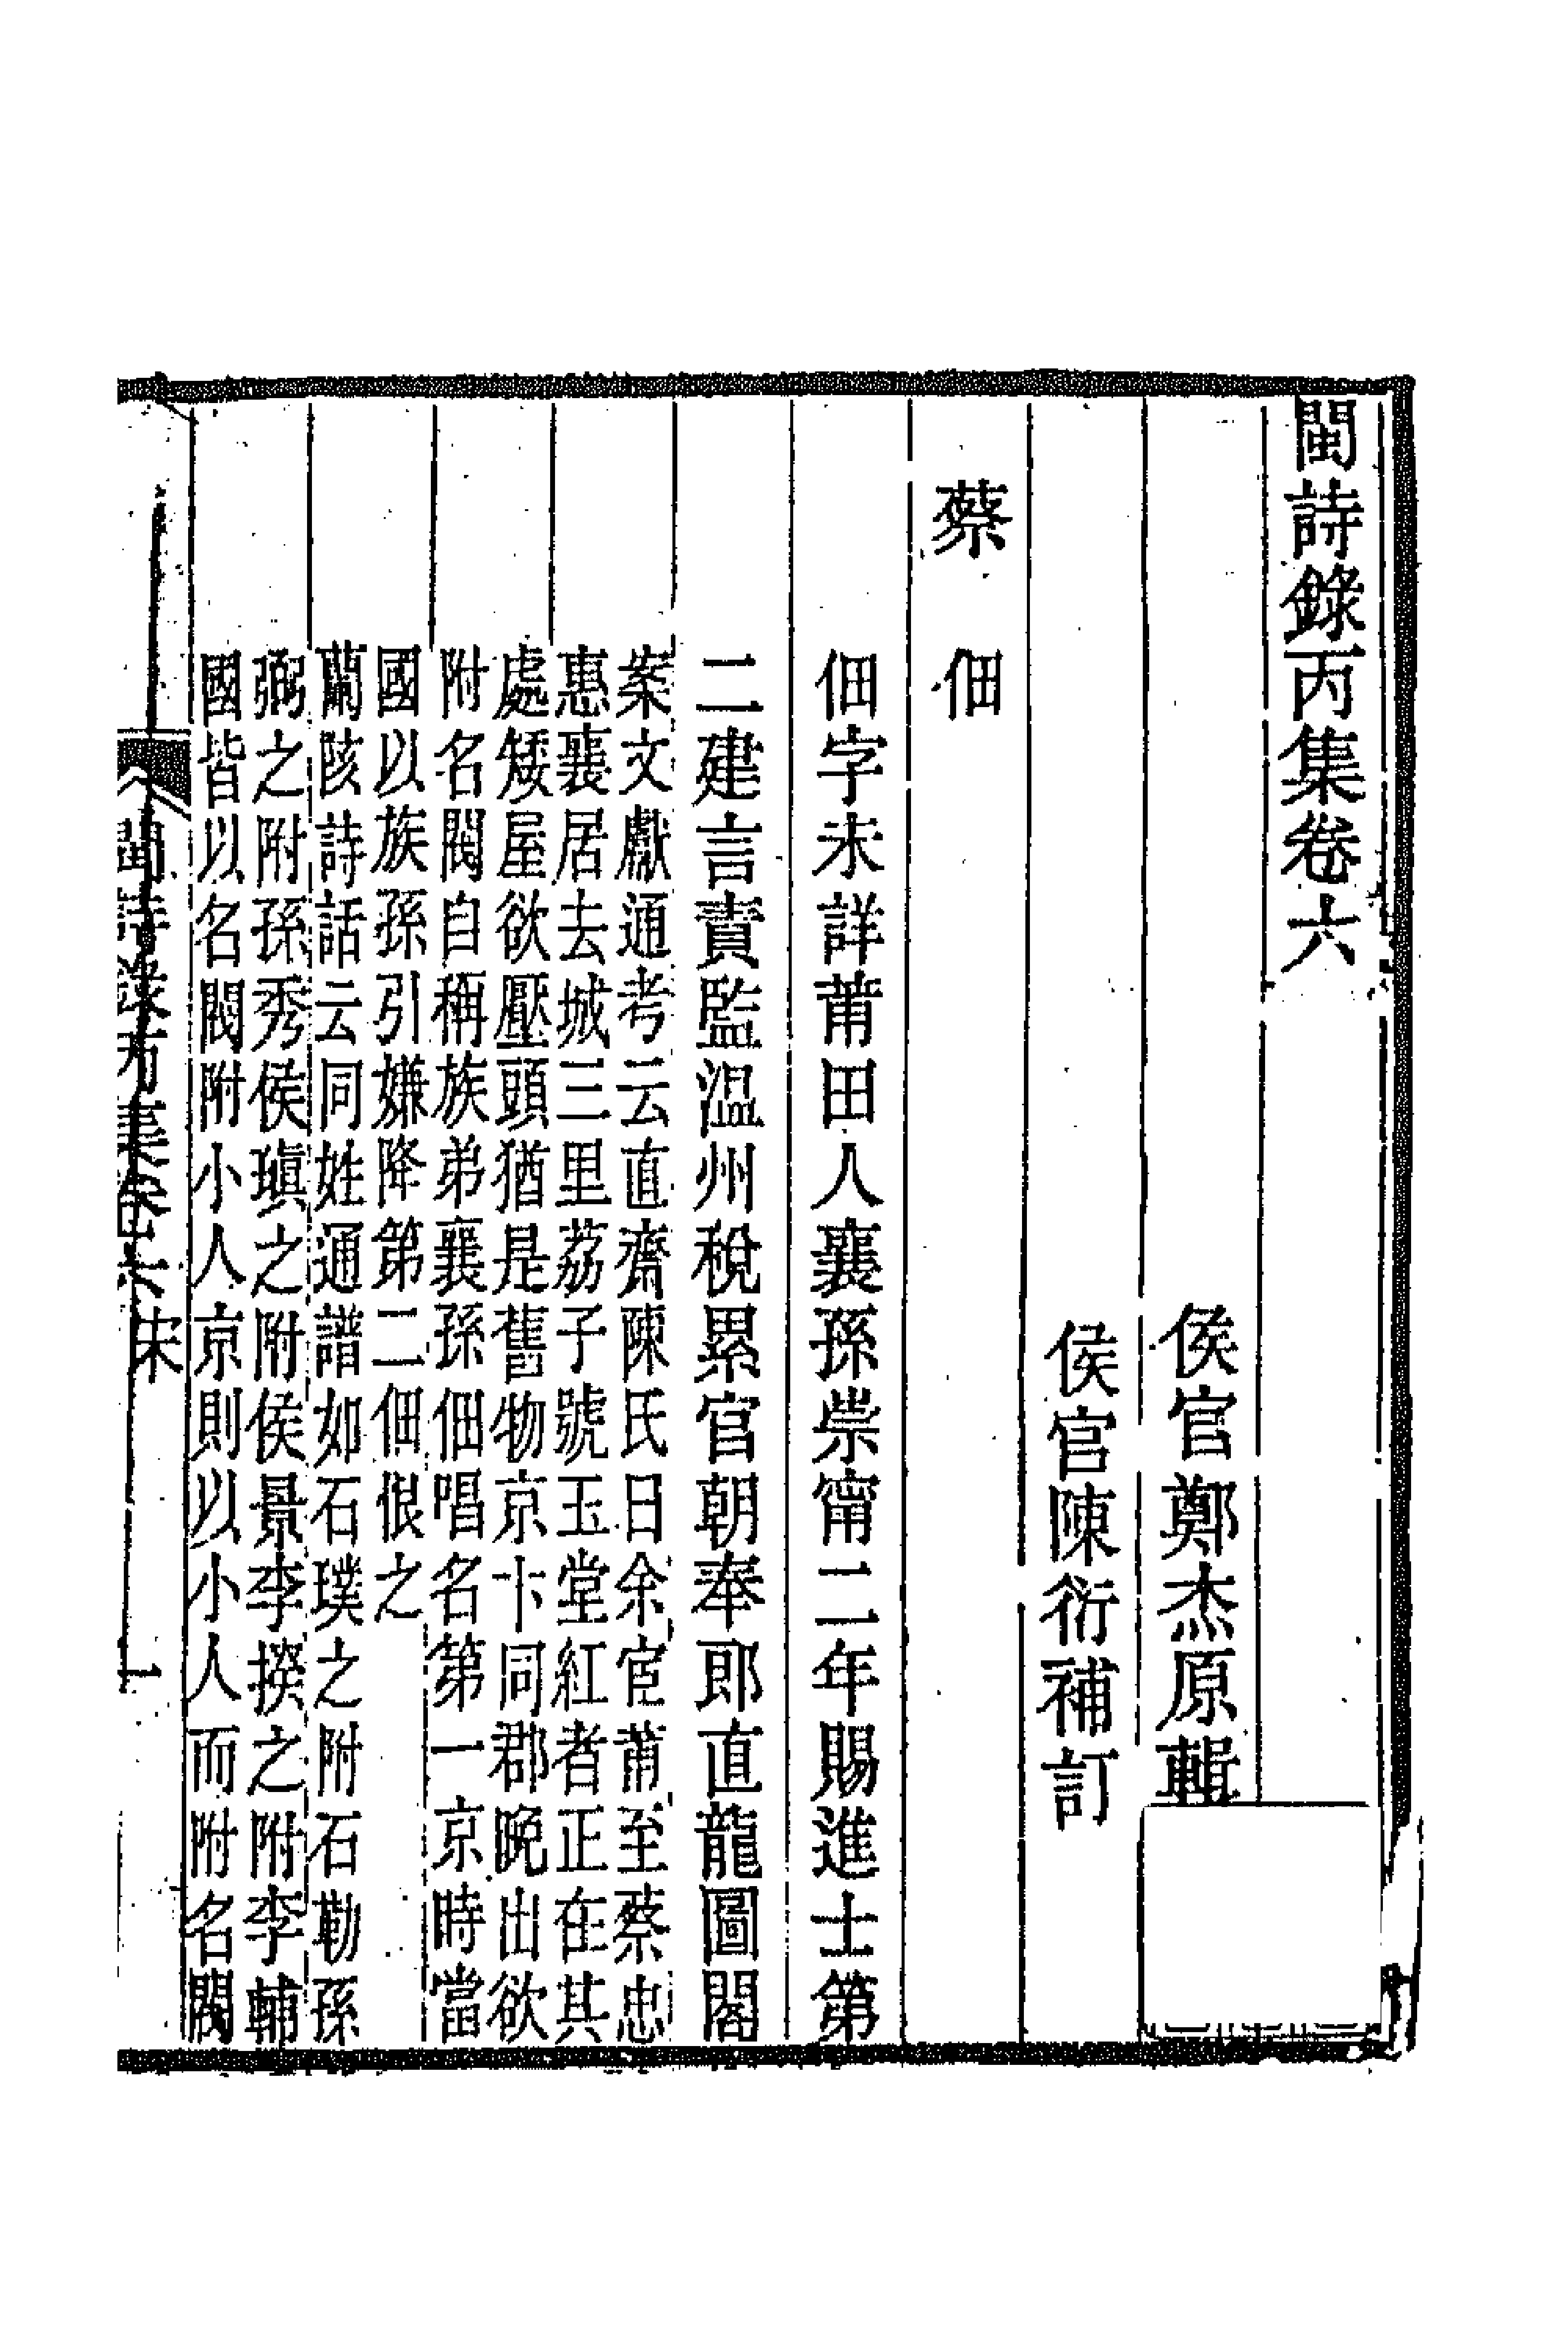 閩詩錄丙集卷六
侯官鄭杰原輯
侯官陳衍補訂
蔡佃
佃字未詳莆田人襄孫崇甯二年賜進士第
二建言責監温州稅累官朝奉郎直龍圖閣
案文獻通考云直齋陳氏曰余宦莆至蔡忠
惠襄居去城三里荔子號玉堂紅者正在其
處矮屋欲壓頭猶是舊物京卞同郡晚出欲
附名閥自稱族弟襄孫佃唱名第一京時當
國以族孫引嫌降第二佃恨之
蘭陔詩話云同姓通譜如石璞之附石勒孫
弼之附孫秀侯瑱之附侯景李揆之附李輔
國皆以名閥附小人京則以小人而附名閥
閩詩錄丙集卷六 宋 一